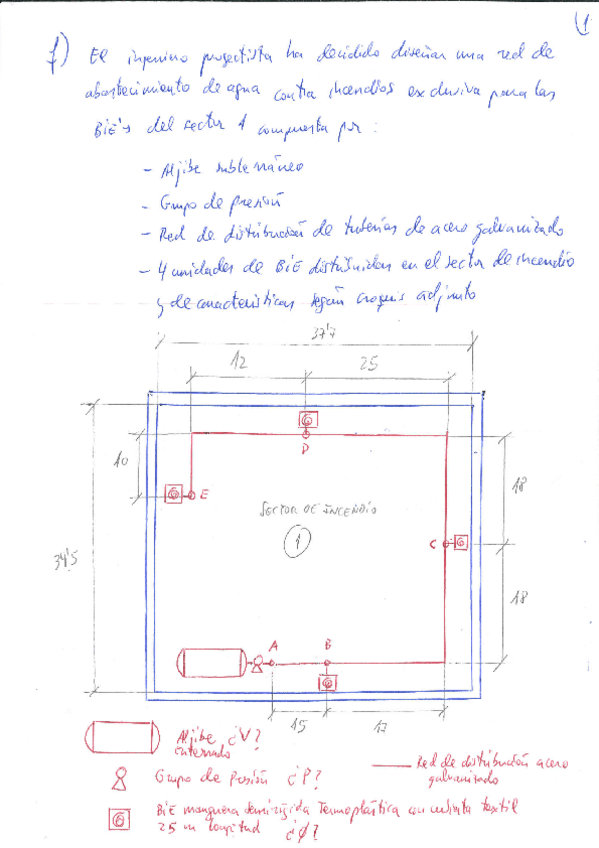 1
f) El ingeniero proyectista ha decidido diseñar una red de
abastecimiento de agua contra incendios exclusiva para las
BiE's del sector 1 compuesta por :
- Aljibe subterráneo
- Grupo de presión
- Red de distribución de tuberías de acero galvanizado
- 4 unidades de BiE distribuidas en el sector de incendio
y de características según croquis adjunto
37'7
12
25
D
10
E
18
SECTOR DE INCENDIO
1
C
34'5
18
A
B
15
Aljibe ¿V?
enterrado
Red de distribución acero
galvanizado
Grupo de Presión ¿P?
BiE manguera semirrígida Termoplástica con cubierta textil
25 m longitud ¿Ø?